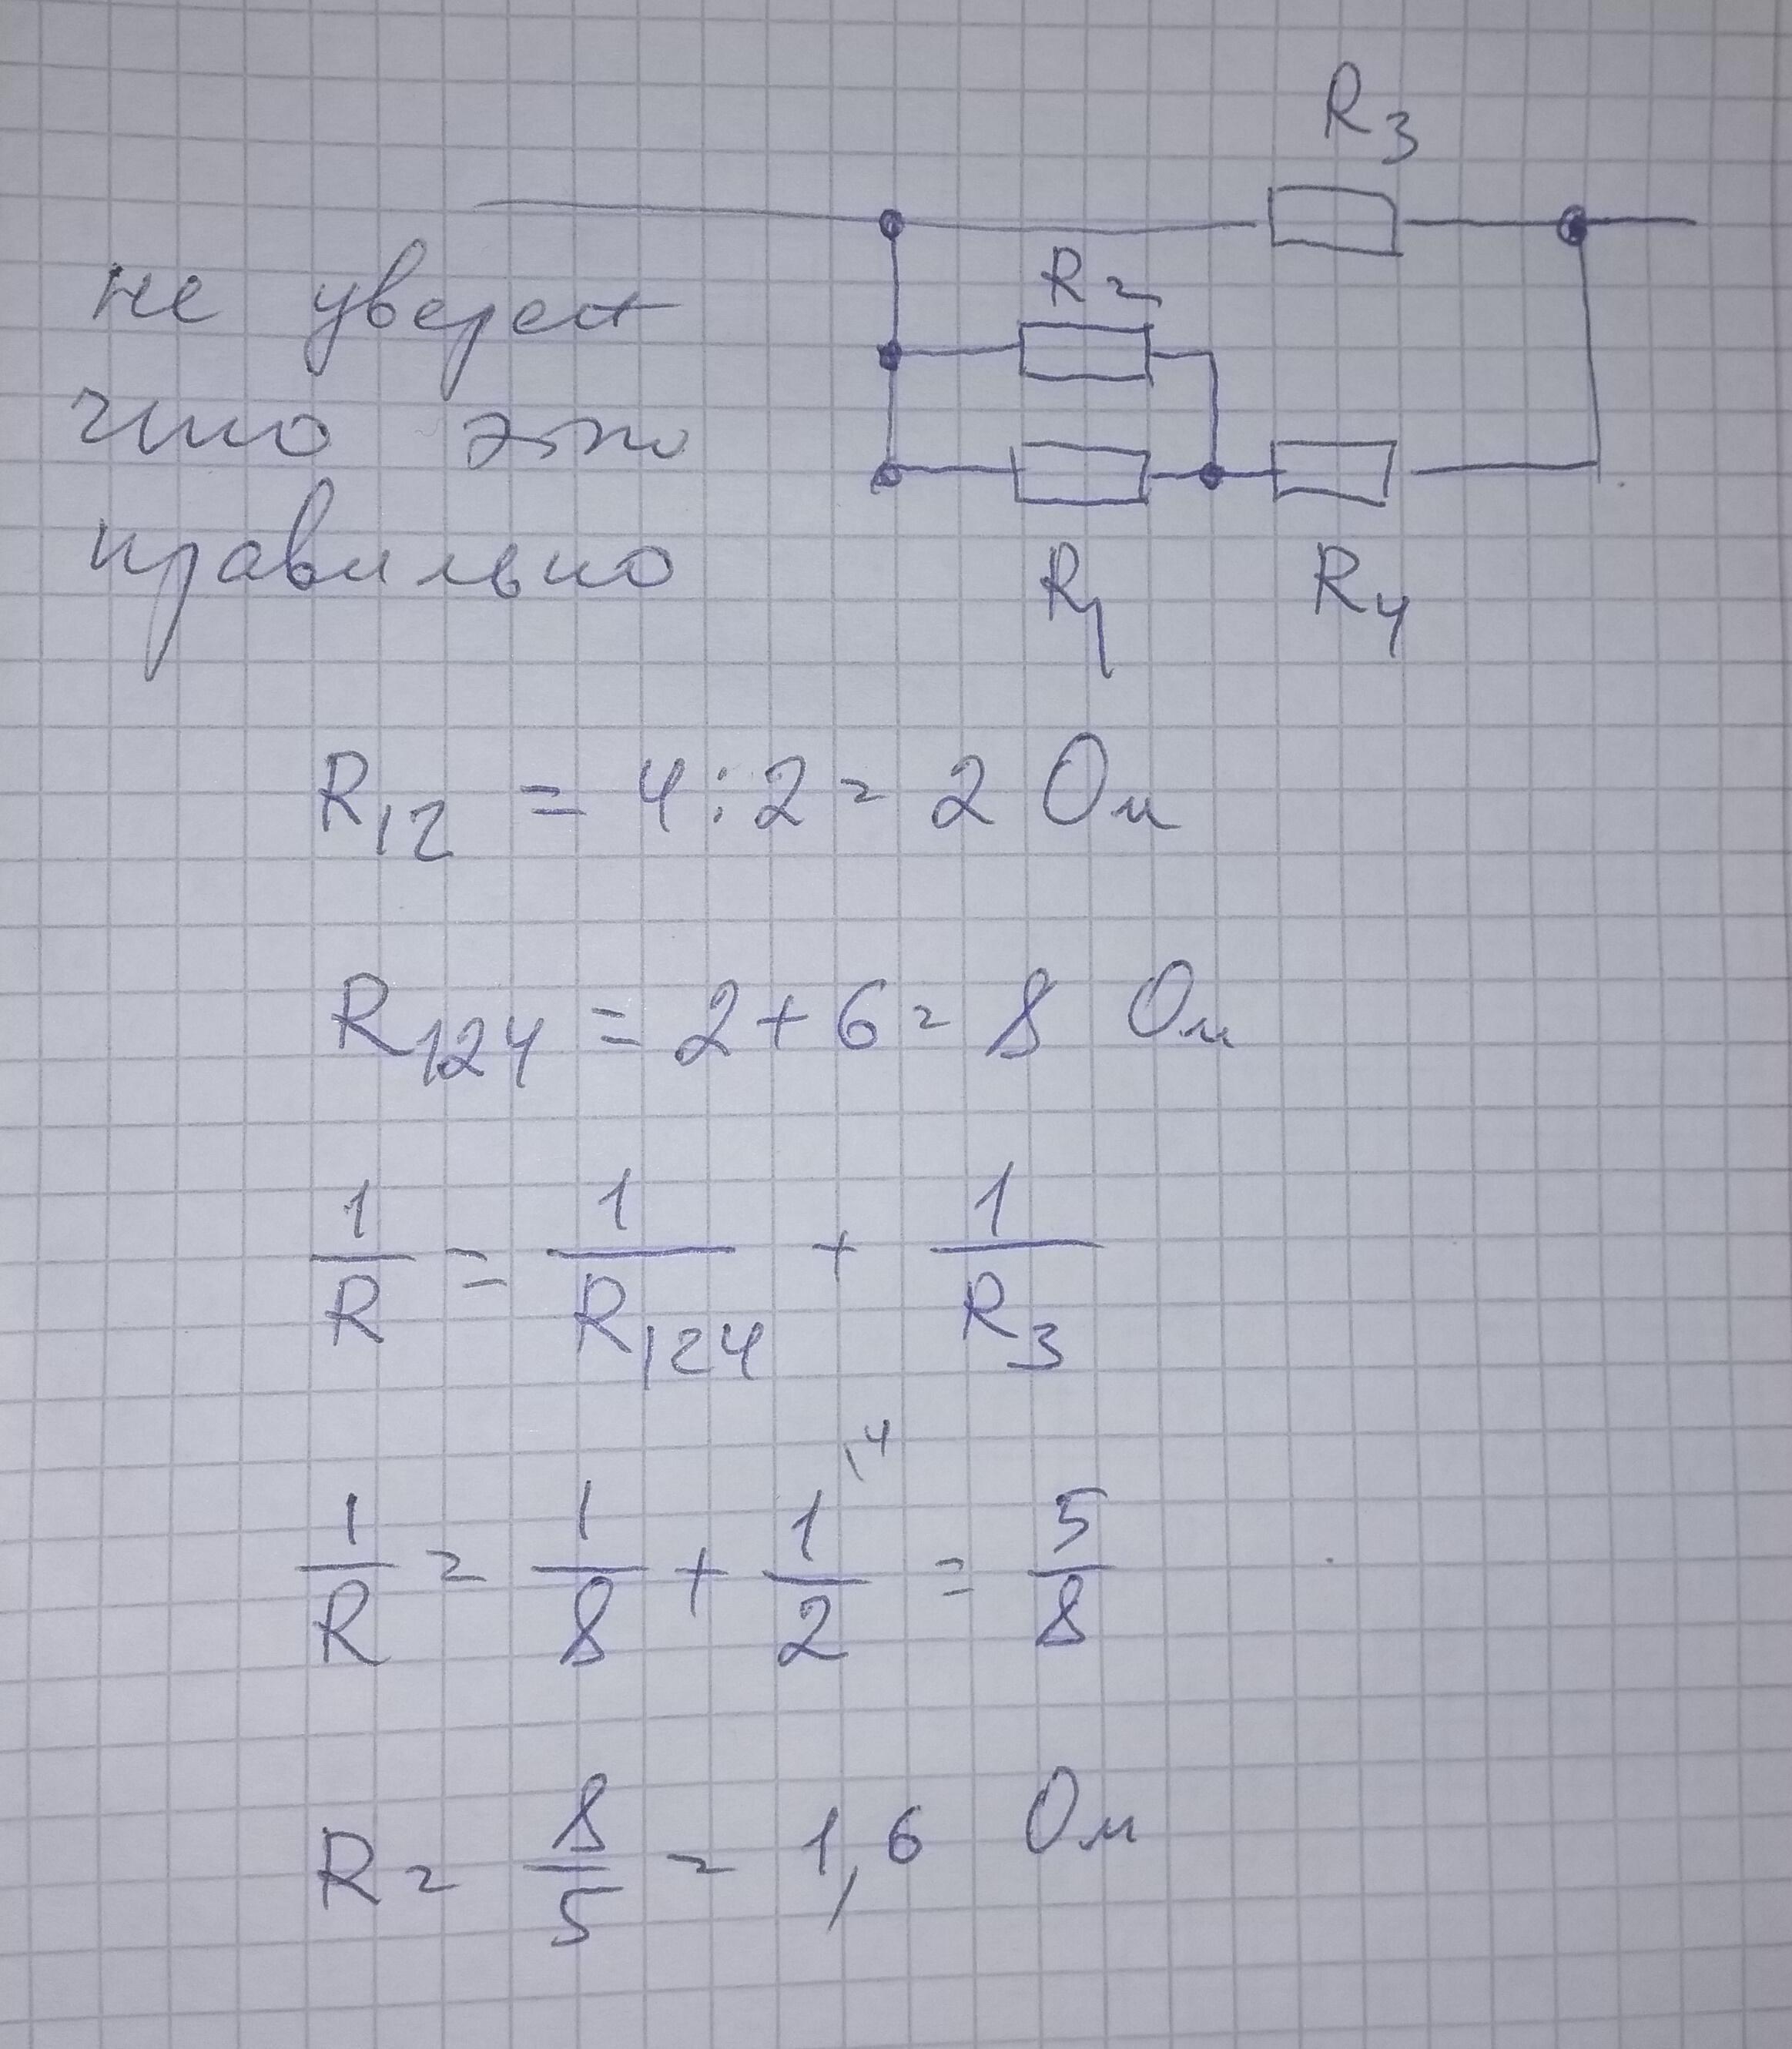 R3
не уверен
R2
что это
правильно
R1
R4
R12 = 4 : 2 = 2 Ом
R124 = 2 + 6 = 8 Ом
1/R = 1/R124 + 1/R3
1/R = 1/8 + 1/2 \4 = 5/8
R = 8/5 = 1,6 Ом